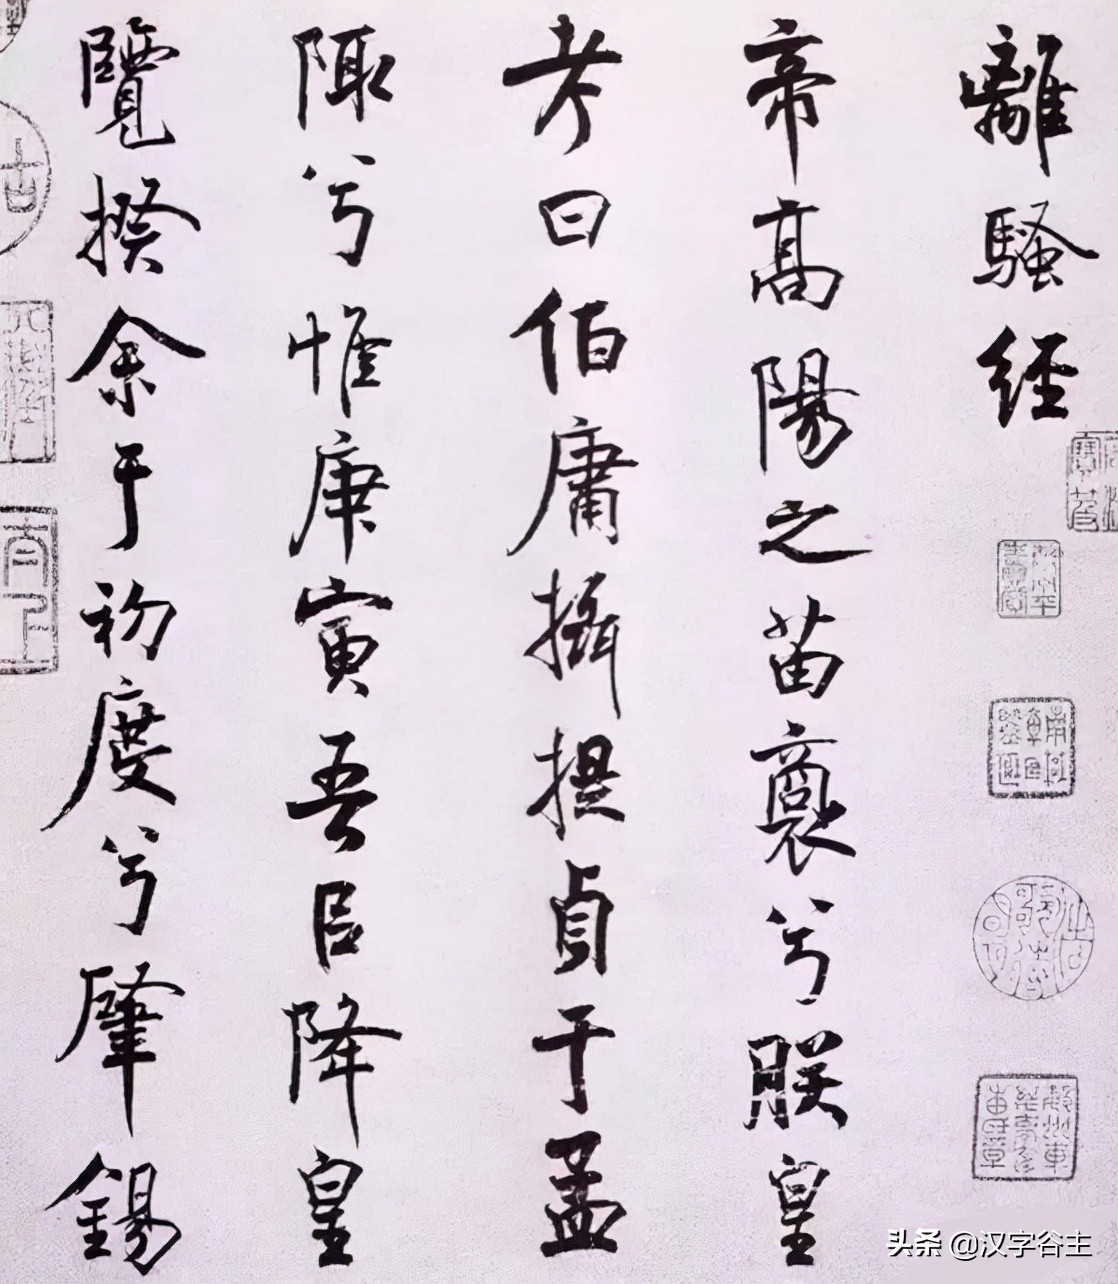 離騷經
帝髙陽之苗裔兮朕皇
考曰伯庸攝提貞于孟
陬兮惟庚寅吾㠯降皇
覽揆余于初度兮肇錫
头条 @汉字谷主